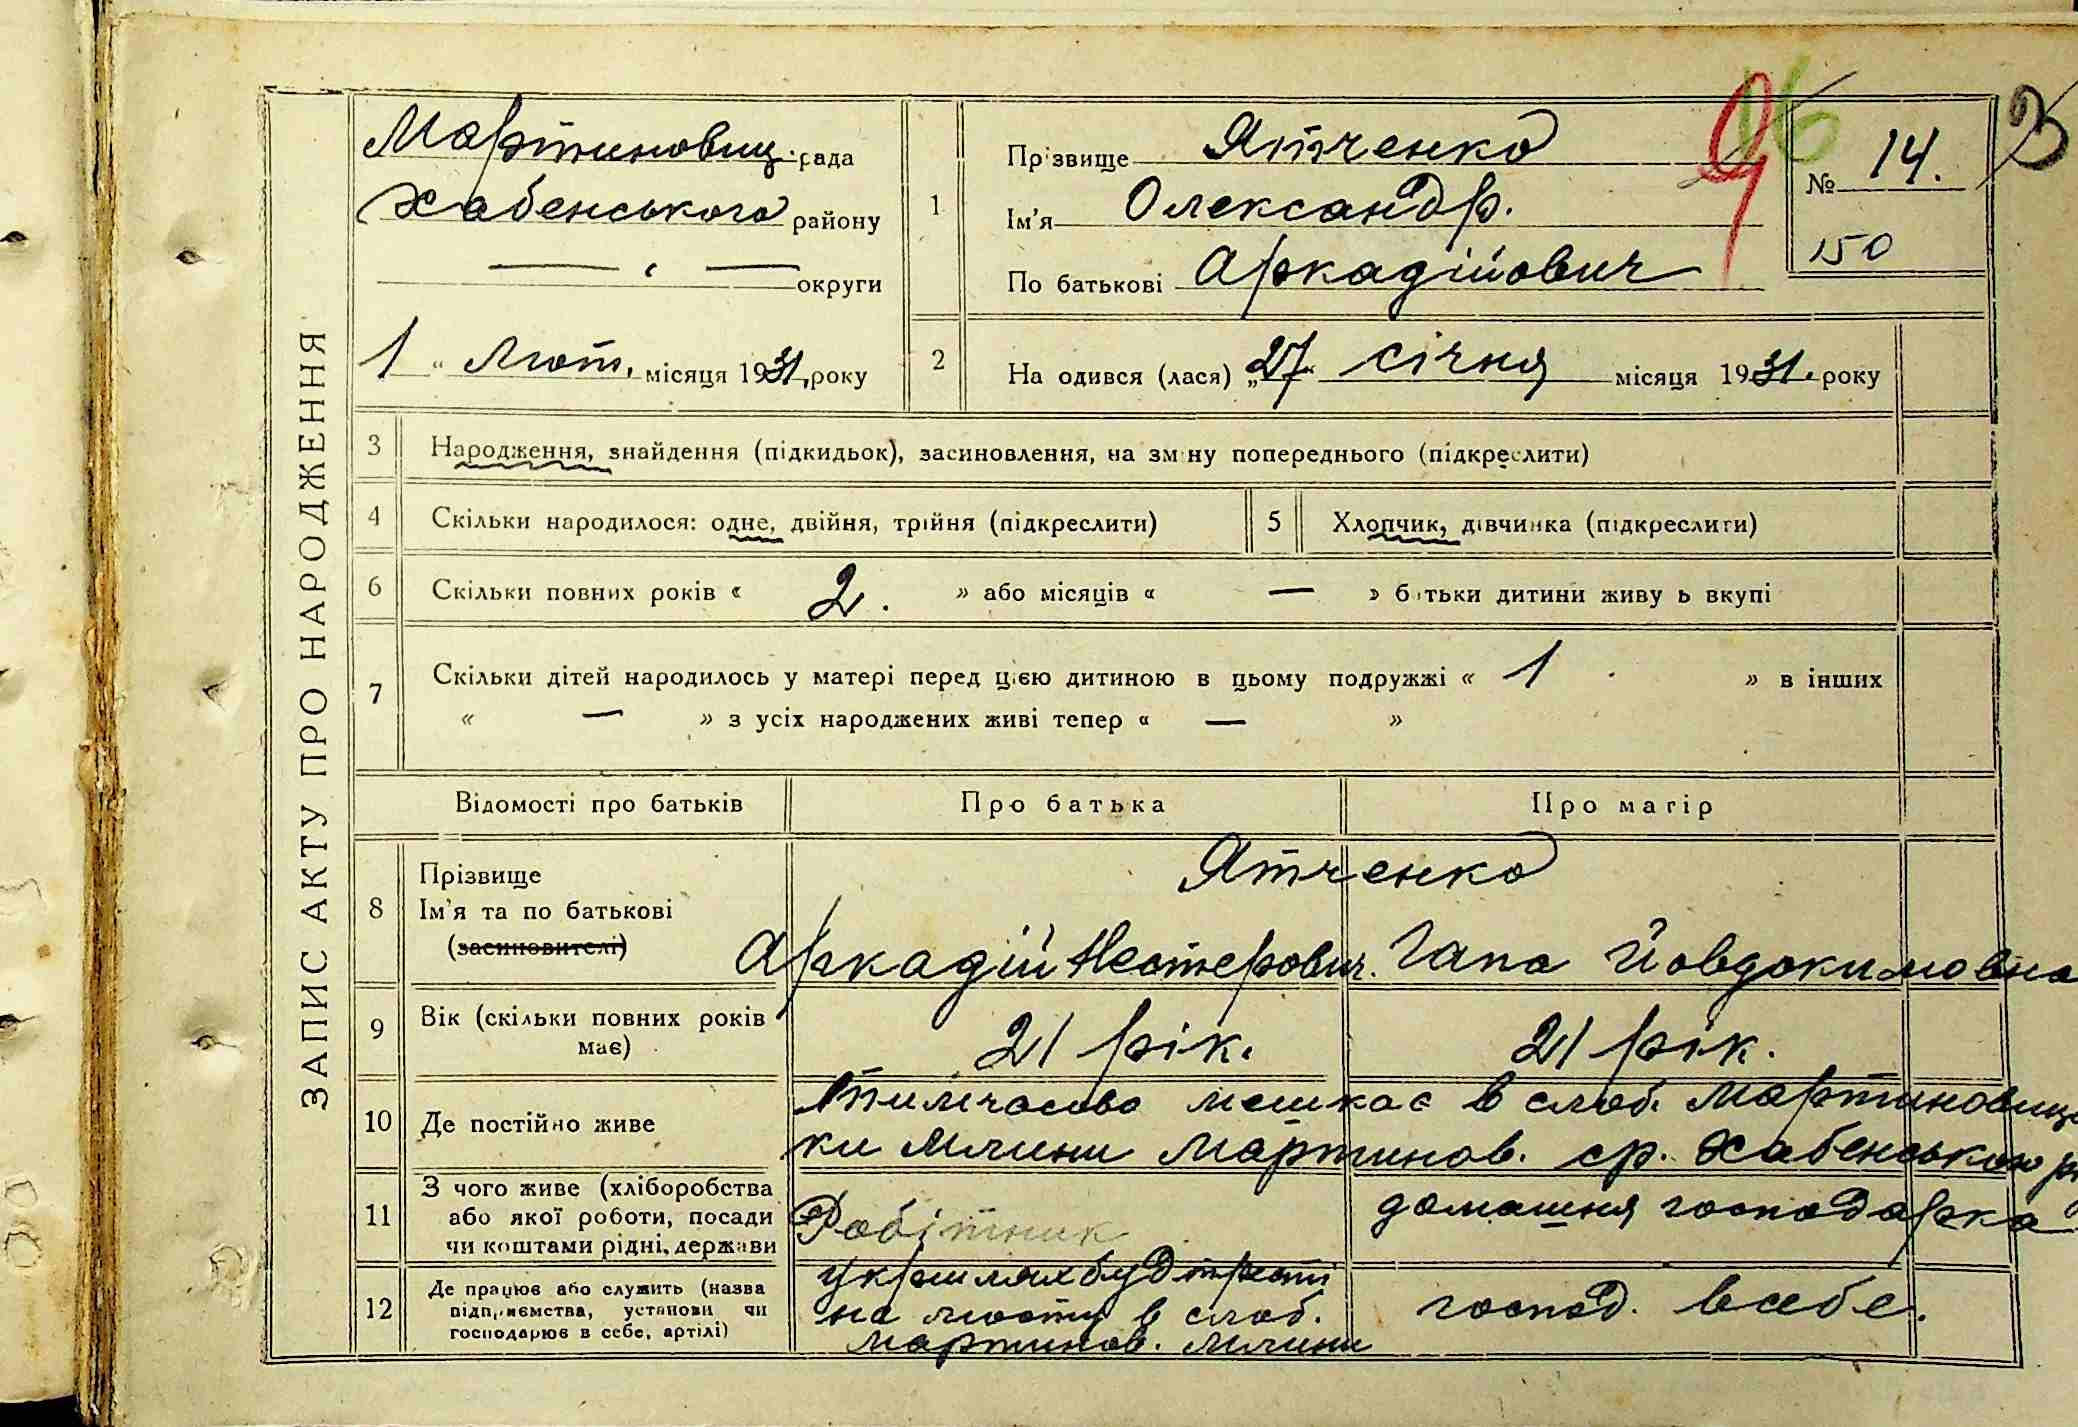 ЗАПИС АКТУ ПРО НАРОДЖЕННЯ
Мартиновиц. рада
Хабенського району
— " — округи
1 " Лют. місяця 1931, року
1
Прізвище Ятченко
Ім'я Олександр.
По батькові Аркадійович
96
№ 14.
150
2
На одився (лася) „27" січня місяця 1931. року
3 Народження, знайдення (підкидьок), засиновлення, на зміну попереднього (підкреслити)
4 Скільки народилося: одне, двійня, трійня (підкреслити)
5 Хлопчик, дівчинка (підкреслити)
6 Скільки повних років « 2. » або місяців « — » батьки дитини живуть вкупі
7 Скільки дітей народилось у матері перед цією дитиною в цьому подружжі « 1 » в інших
« — » з усіх народжених живі тепер « — »
Відомості про батьків Про батька Про матір
8 Прізвище
Ім'я та по батькові
(засиновителі)
Ятченко
Аркадій Нестерович. Гапа Йовдокимовна
9 Вік (скільки повних років має) 21 рік. 21 рік.
10 Де постійно живе
тимчасово мешкає в слоб. Мартиновиц
ки Млини Мартинов. ср. Хабенського р
11 З чого живе (хліборобства
або якої роботи, посади
чи коштами рідні, держави
Робітник
домашня господарка
12 Де працює або служить (назва
підприємства, установи чи
господарює в себе, артілі)
Укршляхбудтресті
на мосту в слоб.
Мартинов. Млини
господ. в себе.